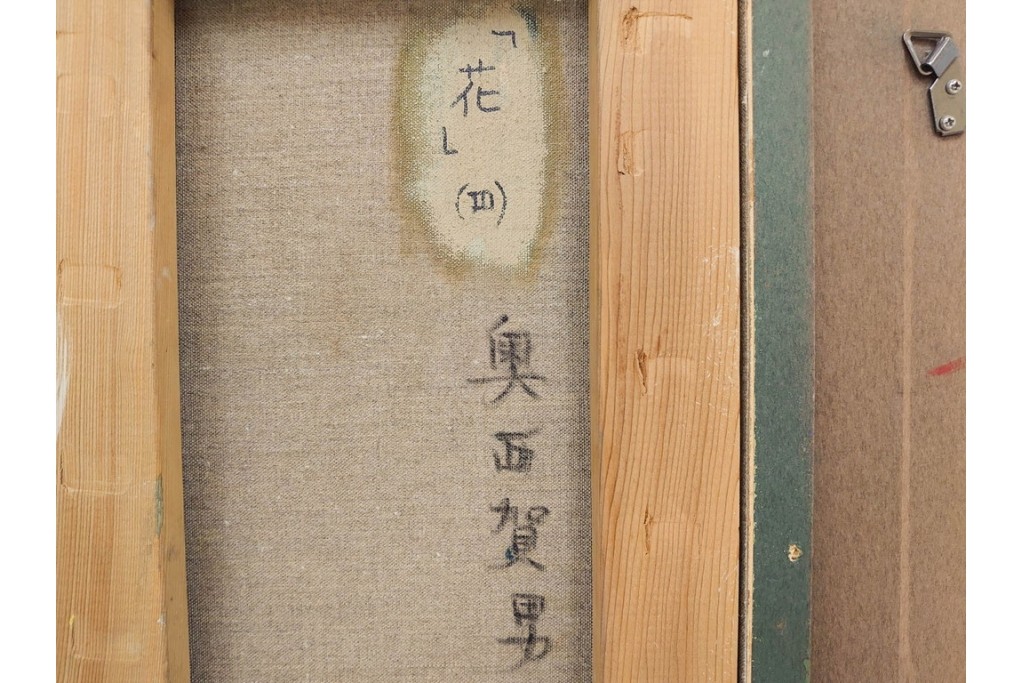 「花」(四)
奥西賀男